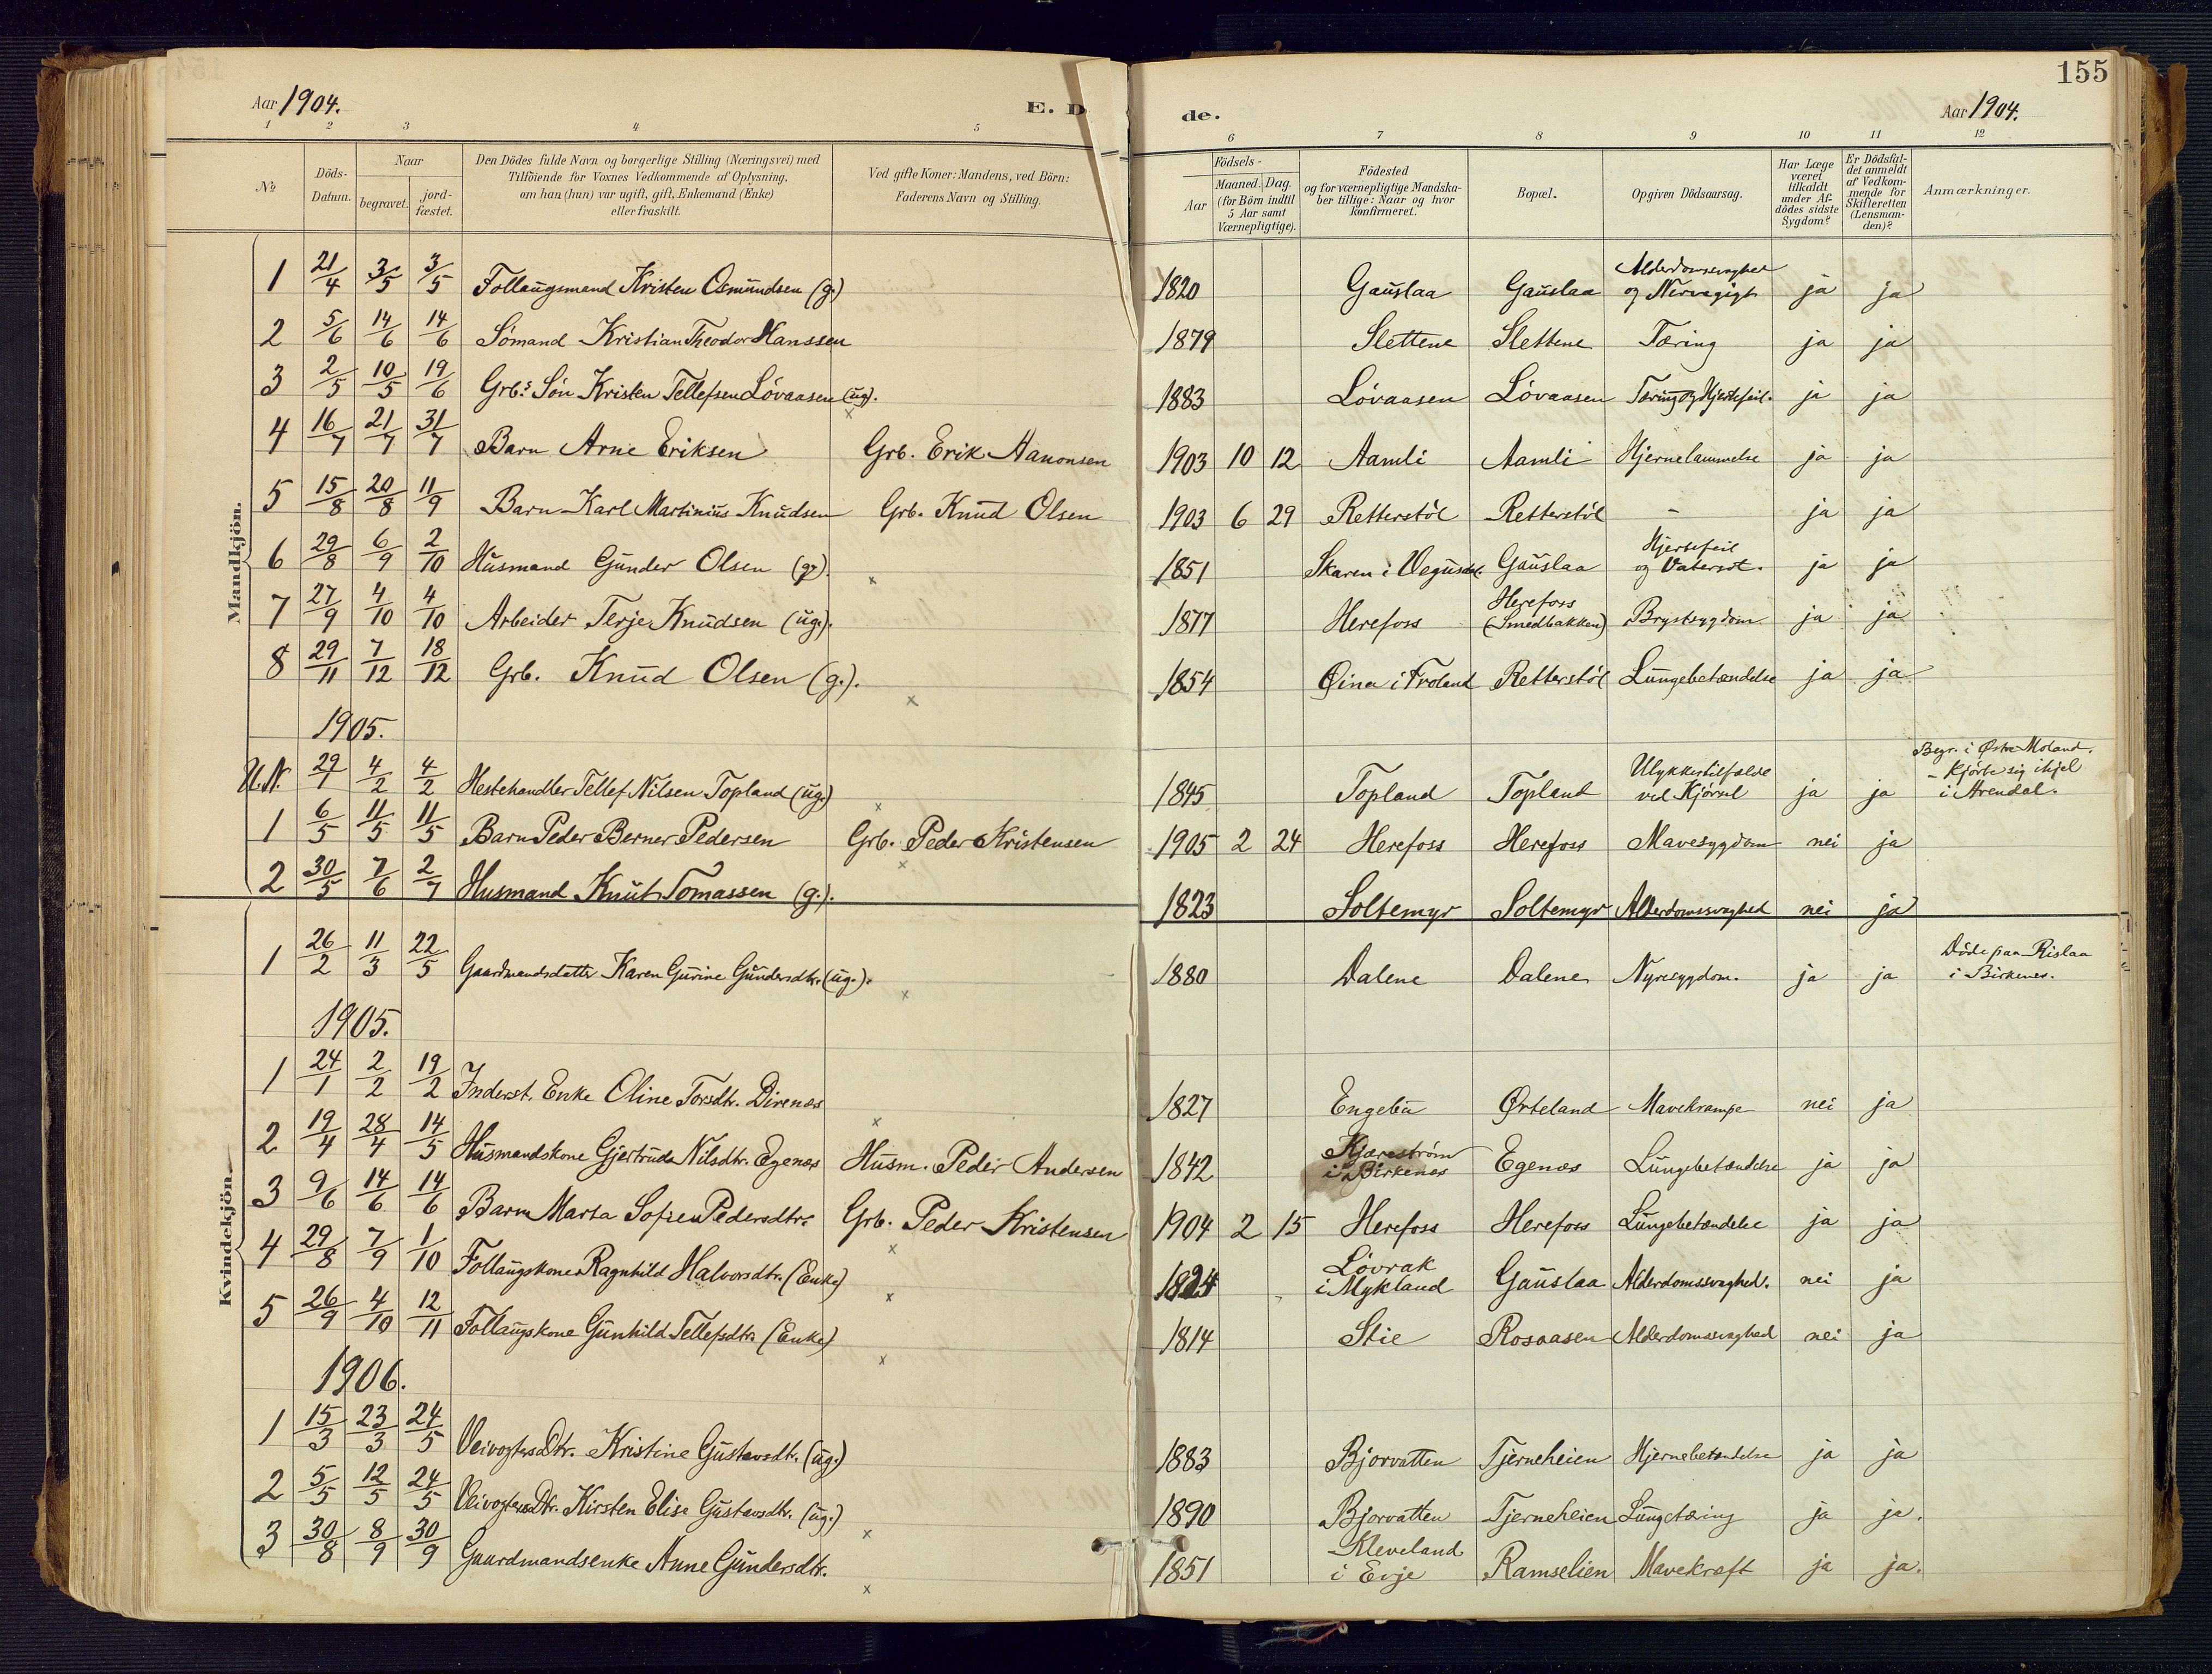 155
Aar 1904. E. D de. Aar 1904.
1 2 3 4 5 6 7 8 9 10 11 12
№ Döds-Datum. Naar begravet. jord-fæstet. Den Dödes fulde Navn og borgerlige Stilling (Næringsvei) med Tilföiende for Voxnes Vedkommende af Oplysning, om han (hun) var ugift, gift, Enkemand (Enke) eller fraskilt. Ved gifte Koner: Mandens, ved Börn: Faderens Navn og Stilling. Födsels- Aar Maaned. Dag. (for Börn indtil 5 Aar samt Værnepligtige). Födested og for værnepligtige Mandskaber tillige: Naar og hvor konfirmeret. Bopæl. Opgiven Dödsaarsag. Har Læge været tilkaldt under Afdödes sidste Sygdom? Er Dödsfaldet anmeldt af Vedkommende for Skifteretten (Lensmanden)? Anmærkninger.
Mandkjön.
1 21/4 3/5 3/5 Follaugsmand Kristen Osmundsen (g.) 1820 Gauslaa Gauslaa Alderdomssvaghed og Nervegigt ja ja
2 5/6 14/6 14/6 Sömand Kristian Theodor Hanssen 1879 Slettene Slettene Tæring ja ja
3 2/5 10/5 19/6 Grbs. Sön Kristen Tellefsen Lövaasen (ug). 1883 Lövaasen Lövaasen Tæring og Hjertefeil. ja ja
4 16/7 21/7 31/7 Barn Arne Eriksen Grb. Erik Aanonsen 1903 10 12 Aamli Aamli Hjernelammelse ja ja
5 15/8 20/8 11/9 Barn Karl Martinius Knudsen Grb. Knud Olsen 1903 6 29 Retterstöl Retterstöl - ja ja
6 29/8 6/9 2/10 Husmand Gunder Olsen (g). 1851 Skaren i Vegusdal. Gauslaa Hjertefeil og Vatersot. ja ja
7 27/9 4/10 4/10 Arbeider Terje Knudsen (ug.). 1877 Herefoss Herefoss (Smedbakken) Brystsygdom ja ja
8 29/11 7/12 18/12 Grb. Knud Olsen (g.). 1854 Øina i Froland Retterstöl Lungebetændelse ja ja
1905.
U.N. 29/1 4/2 4/2 Hestehandler Tellef Nilsen Topland (ug.) 1845 Topland Topland Ulykkestilfælde ved Kjørsel ja ja Begr. i Østre Moland. - Kjørte sig ihjel i Arendal.
1 6/5 11/5 11/5 Barn Peder Berner Pedersen Grb. Peder Kristensen 1905 2 24 Herefoss Herefoss Mavesygdom nei ja
2 30/5 7/6 2/7 Husmand Knut Tomassen (g.). 1823 Soltemyr Soltemyr Alderdomssvaghed nei ja
Kvindekjön.
1 26/2 11/3 22/5 Gaardmandsdatter Karen Gurine Gundersdtr. (ug.). 1880 Dalene Dalene Nyresygdom. ja ja Döde paa Rislaa i Birkenes.
1905.
1 24/1 2/2 19/2 Inderst. Enke Oline Torsdtr. Direnes 1827 Engebu Ørteland Mavekrampe nei ja
2 19/4 28/4 14/5 Husmandskone Gjertrude Nilsdtr. Egenæs Husm. Peder Andersen 1842 Kjærestrøm i Birkenes Egenæs Lungebetændelse ja ja
3 9/6 14/6 14/6 Barn Marta Sofie Pedersdtr. Grb. Peder Kristensen 1904 2 15 Herefoss Herefoss Lungebetændelse ja ja
4 29/8 7/9 1/10 Follaugskone Ragnhild Halvorsdtr. (Enke) 1824 Lövrak i Mykland Gauslaa Alderdomssvaghed. nei ja
5 26/9 4/10 12/11 Follaugskone Gunhild Tellefsdtr. (Enke) 1814 Stie Rosaasen Alderdomssvaghed nei ja
1906.
1 15/3 23/3 24/5 Veivogters Dtr. Kristine Gustavsdtr. (ug.) 1883 Bjorvatten Tjerneheien Hjernebetændelse ja ja
2 5/5 12/5 24/5 Veivogters Dtr. Kirsten Elise Gustavsdtr. (ug.) 1890 Bjorvatten Tjerneheien Lungetæring ja ja.
3 30/8 8/9 30/9 Gaardmandsenke Anne Gundersdtr. 1851 Kleveland i Evje Ramselien Mavekræft ja ja.